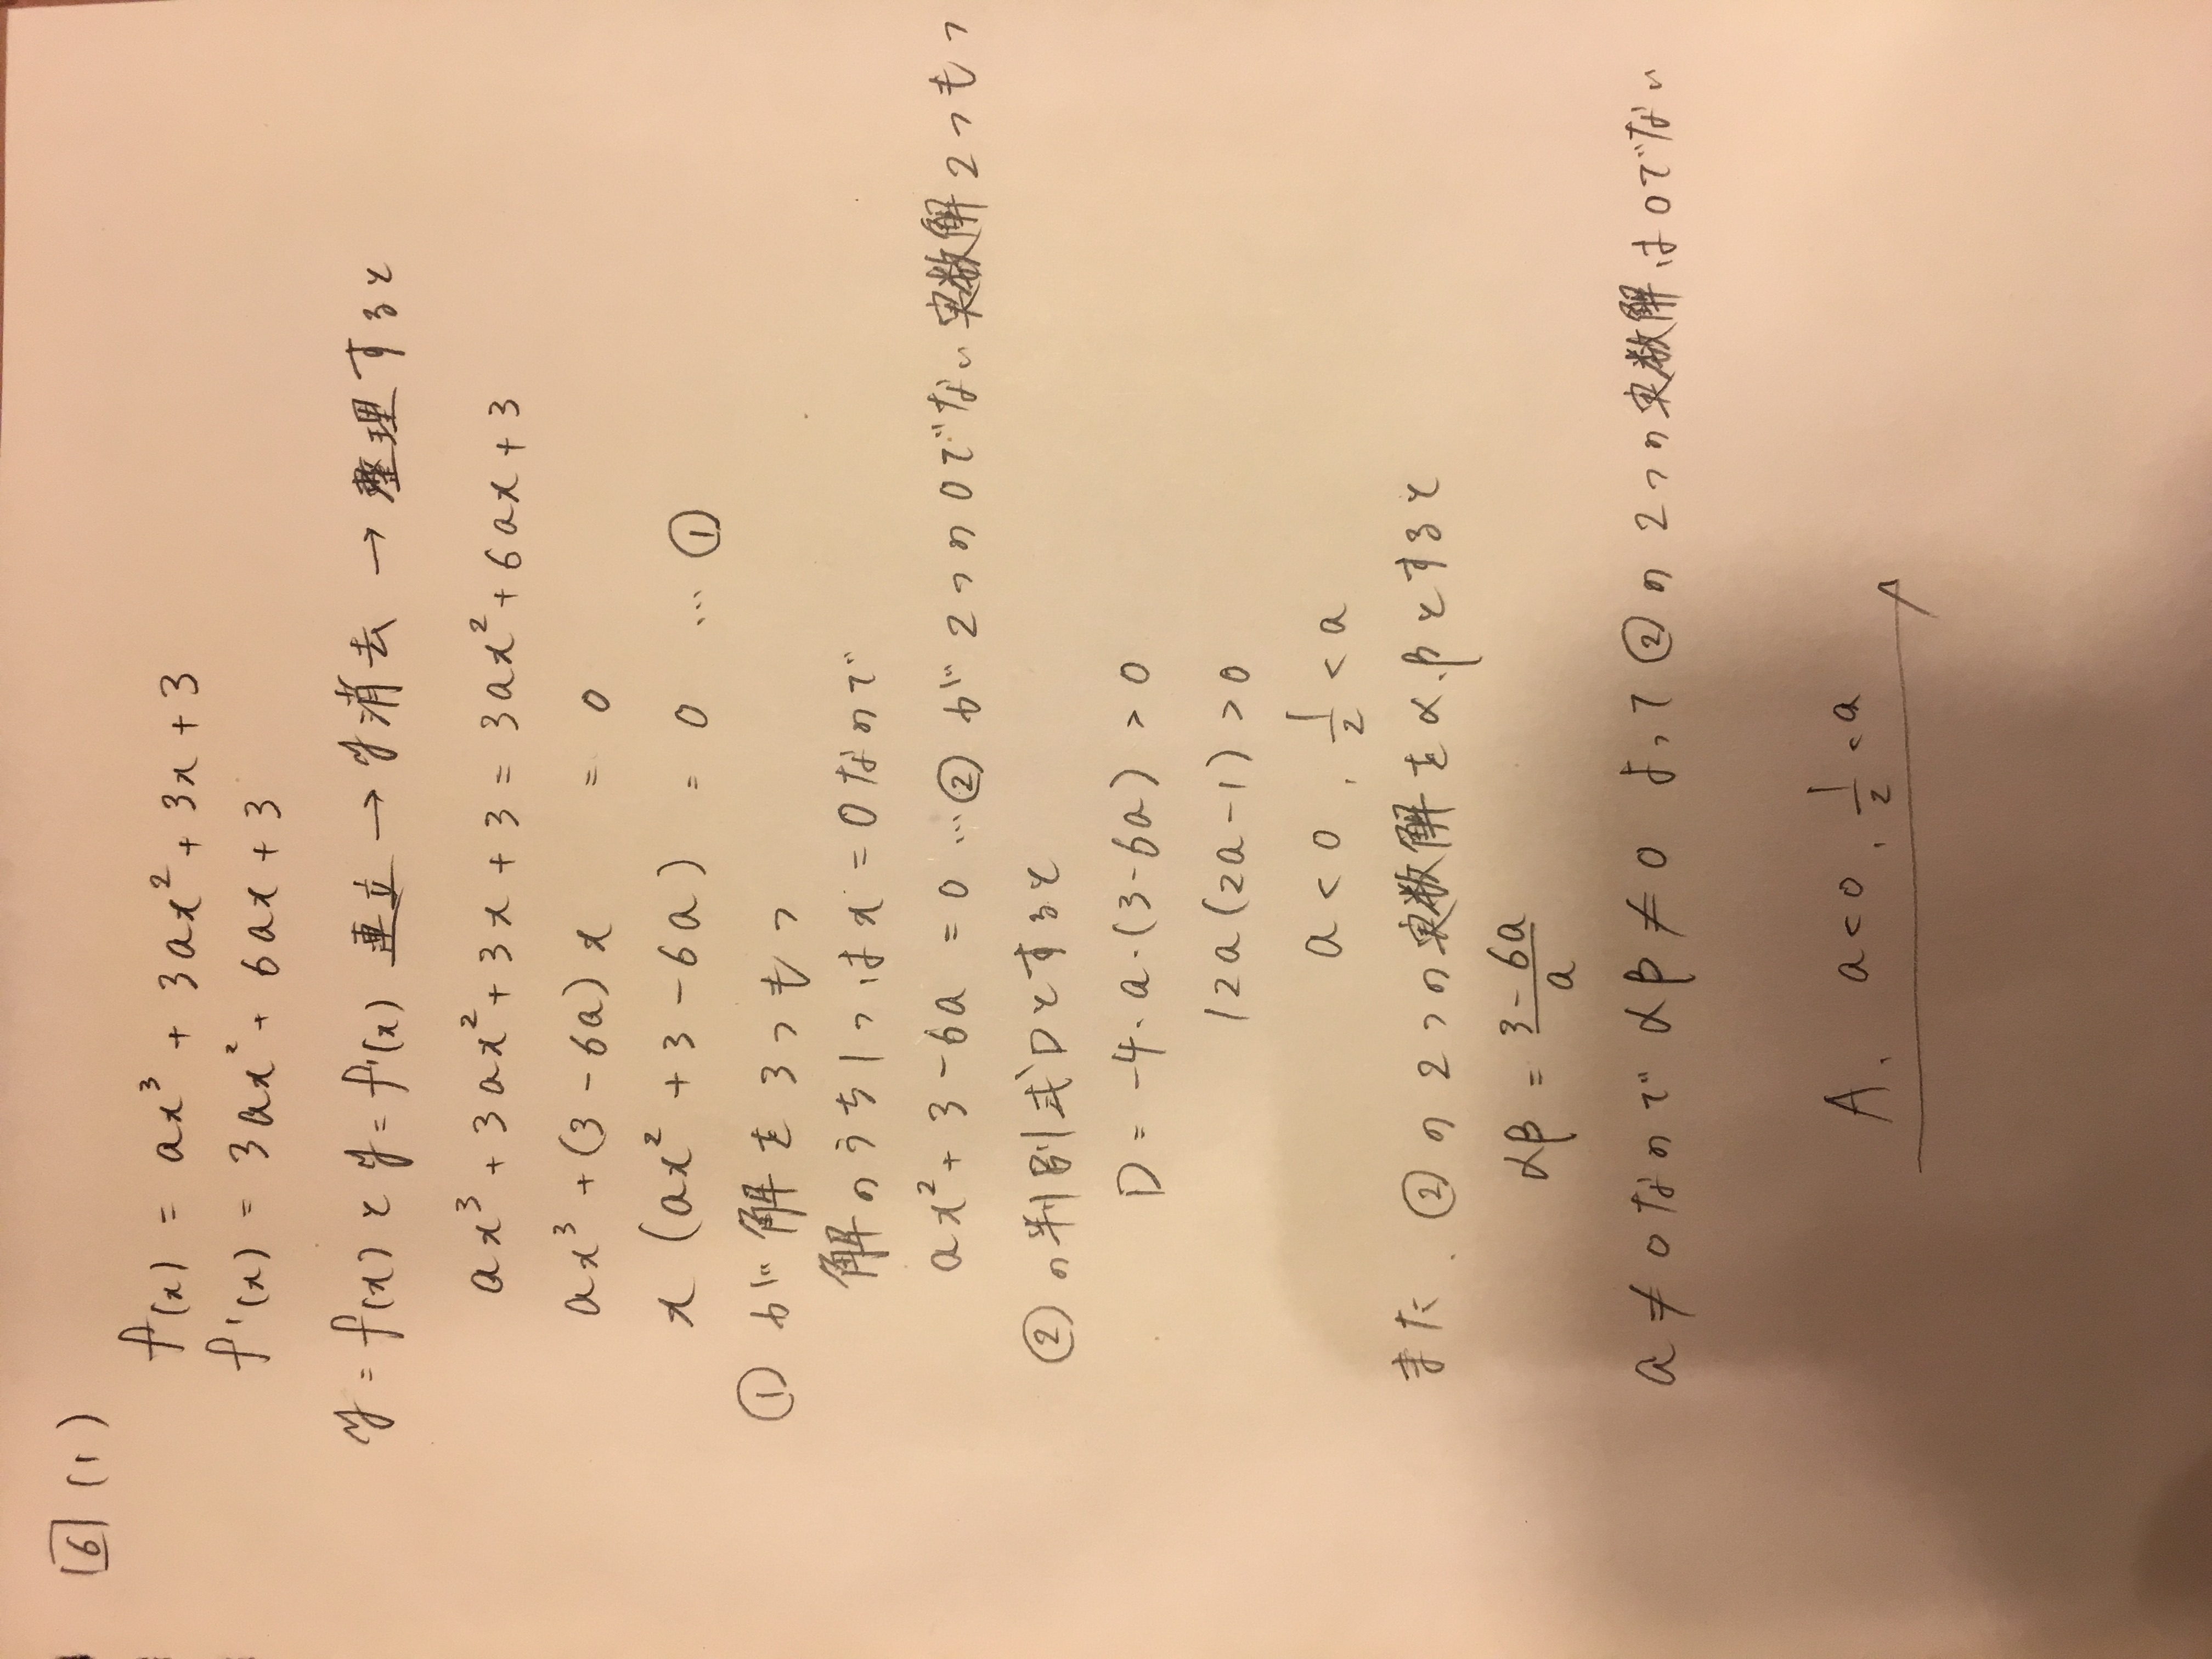 6 (1)
f(x) = ax³ + 3ax² + 3x + 3
f'(x) = 3ax² + 6ax + 3
y = f(x) と y = f'(x) 連立 → y消去 → 整理すると
ax³ + 3ax² + 3x + 3 = 3ax² + 6ax + 3
ax³ + (3 - 6a)x = 0
x (ax² + 3 - 6a) = 0 … ①
① が解を3つもつ
解のうち1つはx = 0なので
ax² + 3 - 6a = 0 … ② が2つの0でない実数解2つもつ
② の判別式Dとすると
D = -4・a・(3 - 6a) > 0
12a(2a - 1) > 0
a < 0, 1/2 < a
また、② の2つの実数解をα,βとすると
αβ = (3 - 6a)/a
a ≠ 0 なので αβ ≠ 0 よって ② の2つの実数解は0でない
A. a < 0, 1/2 < a